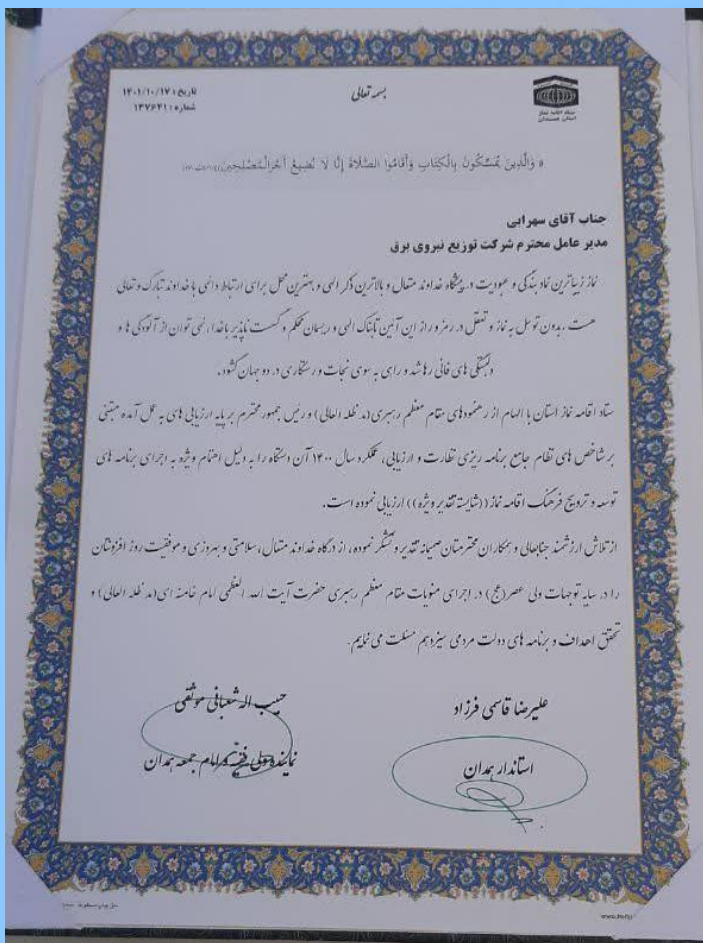 بسمه تعالی
تاریخ: ۱۴۰۱/۱۰/۱۷
شماره: ۱۳۷۶۴۱
ستاد اقامه نماز
استان همدان
« وَالَّذِينَ يُمَسِّكُونَ بِالْكِتَابِ وَأَقَامُوا الصَّلَاةَ إِنَّا لَا نُضِيعُ أَجْرَ الْمُصْلِحِينَ»
جناب آقای سهرابی
مدیر عامل محترم شرکت توزیع نیروی برق
نماز زیباترین نماد بندگی و عبودیت در پیشگاه خداوند متعال و بالاترین ذکر الهی و بهترین محل برای ارتباط دائمی با خداوند تبارک و تعالی
هست ، بدون توسل به نماز و تعقل در رمز و راز این آئین تابناک الهی و ریسمان محکم و گسست ناپذیر با خدا، نمی توان از آلودگی ها و
دلبستگی های فانی رها شد و راهی به سوی نجات و رستگاری در دو جهان گشود.
ستاد اقامه نماز استان با الهام از رهنمودهای مقام معظم رهبری (مد ظله العالی) و رئیس جمهور محترم بر پایه ارزیابی های به عمل آمده مبتنی
بر شاخص های نظام جامع برنامه ریزی نظارت و ارزیابی، عملکرد سال ۱۴۰۰ آن دستگاه را به دلیل اهتمام ویژه به اجرای برنامه های
توسعه و ترویج فرهنگ اقامه نماز ((شایسته تقدیر ویژه)) ارزیابی نموده است.
از تلاش ارزشمند جنابعالی و همکاران محترمتان صمیمانه تقدیر و تشکر نموده، از درگاه خداوند متعال، سلامتی و بهروزی و موفقیت روز افزونتان
را در سایه توجهات ولی عصر(عج) در اجرای منویات مقام معظم رهبری حضرت آیت الله العظمی امام خامنه ای(مد ظله العالی) و
تحقق اهداف و برنامه های دولت مردمی سیزدهم مسئلت می نمایم.
علیرضا قاسمی فرزاد
استاندار همدان
حبیب اله شعبانی موثقی
نماینده ولی فقیه و امام جمعه همدان